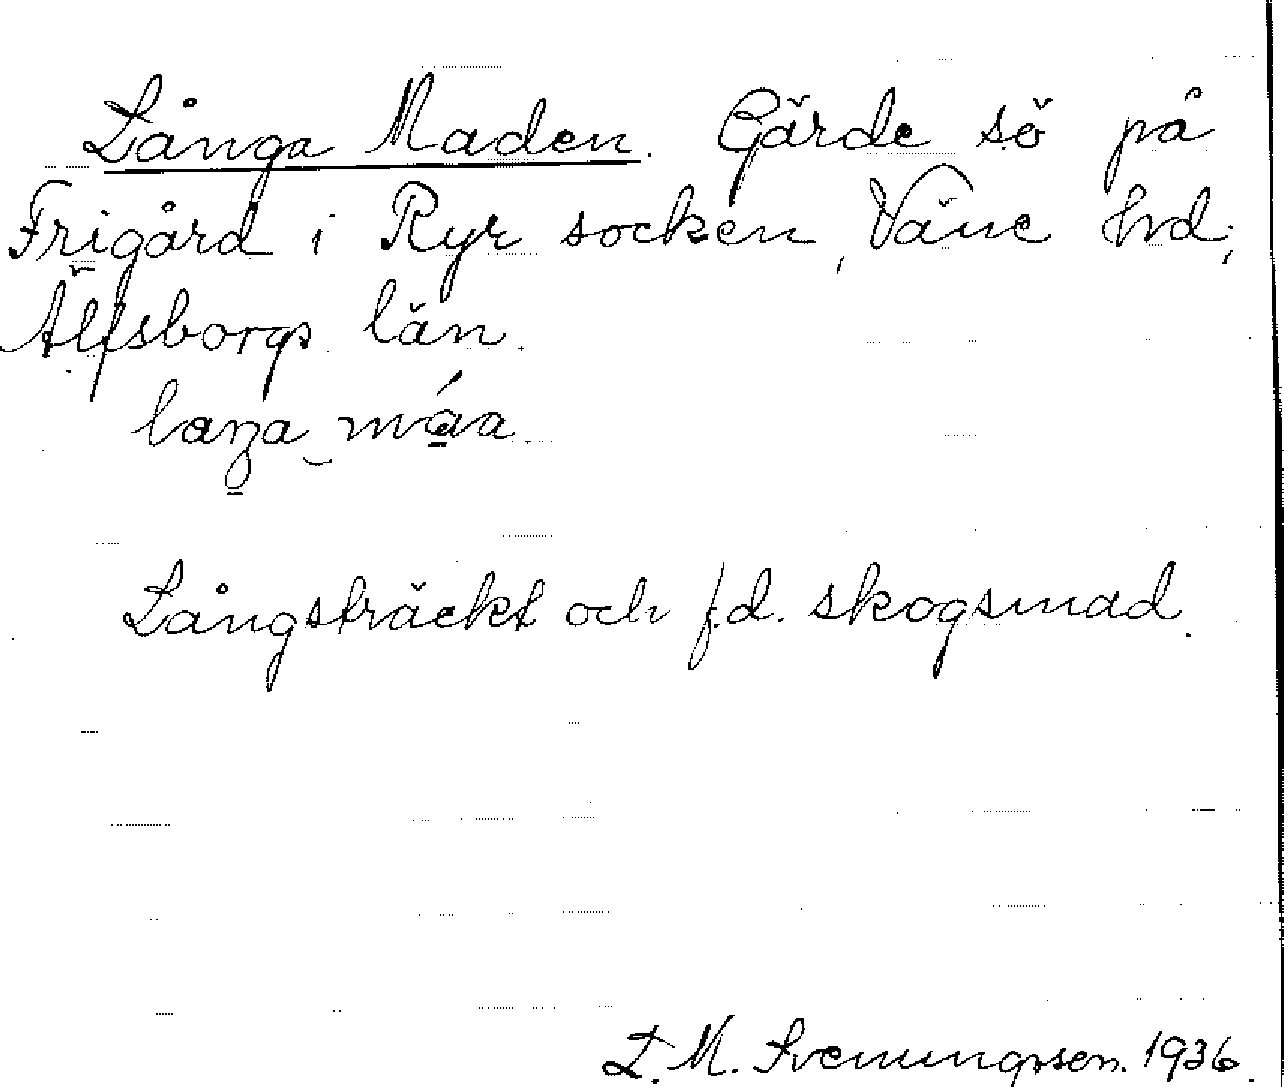 Långa Maden. Gärde sö på
Frigård i Ryr socken, Väne hd;
Älfsborgs län.
Långsträckt och f.d. skogsmad.
L. M. Svenungsson. 1936.